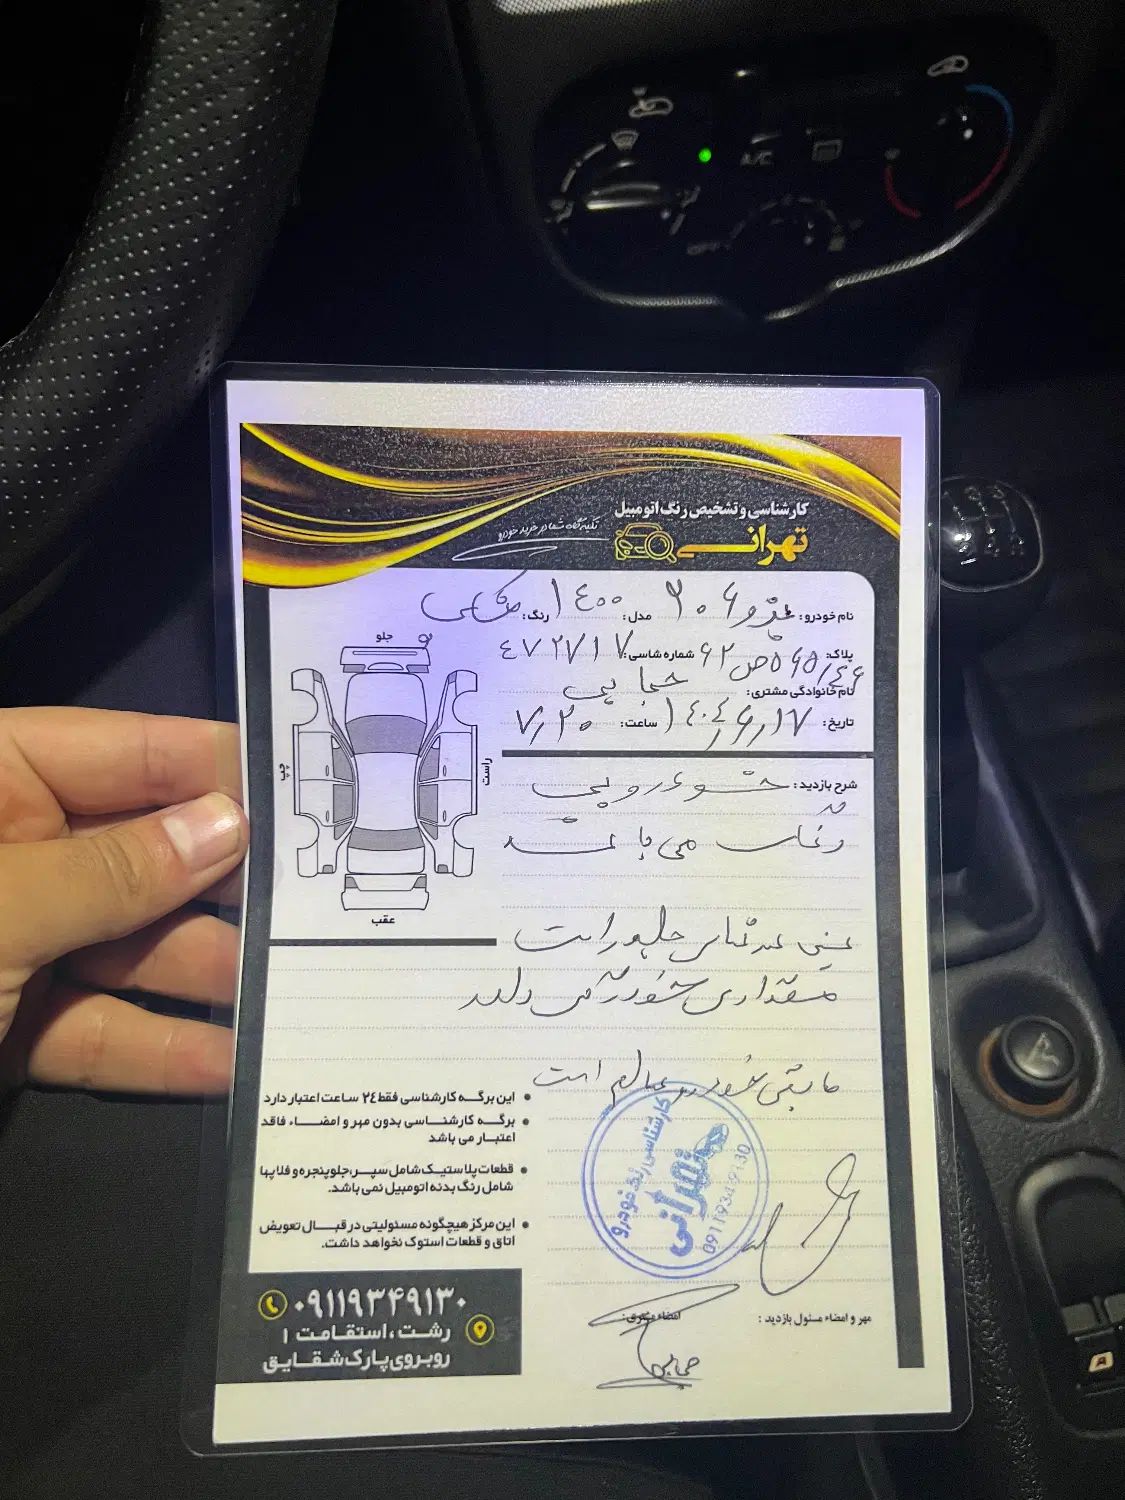 کارشناسی و تشخیص رنگ اتومبیل
تهرانی
تکیه گاه شما در خرید خودرو
نام خودرو: پژو ۲۰۶ مدل: ۱۴۰۰ رنگ: مشکی
پلاک: ۴۶/ ۵۶۵ص۶۲ شماره شاسی: ۴۷۲۷۱۷
نام خانوادگی مشتری: حجابی
تاریخ: ۱۴۰۴/۶/۱۷ ساعت: ۷/۲۰
جلو
چپ
راست
عقب
شرح بازدید: خودرویی
می باشد
جلو راست
مقداری خوردگی دارد
مابقی خودرو سالم است
این برگه کارشناسی فقط ۲۴ ساعت اعتبار دارد
برگه کارشناسی بدون مهر و امضاء فاقد
اعتبار می باشد
قطعات پلاستیک شامل سپر، جلوپنجره و فلاپها
شامل رنگ بدنه اتومبیل نمی باشد.
این مرکز هیچگونه مسئولیتی در قبال تعویض
اتاق و قطعات استوک نخواهد داشت.
کارشناسی رنگ خودرو
تهرانی
09119349130
مهر و امضاء مسئول بازدید:
امضاء مشتری:
حجابی
۰۹۱۱۹۳۴۹۱۳۰
رشت، استقامت ۱
روبروی پارک شقایق
A/C